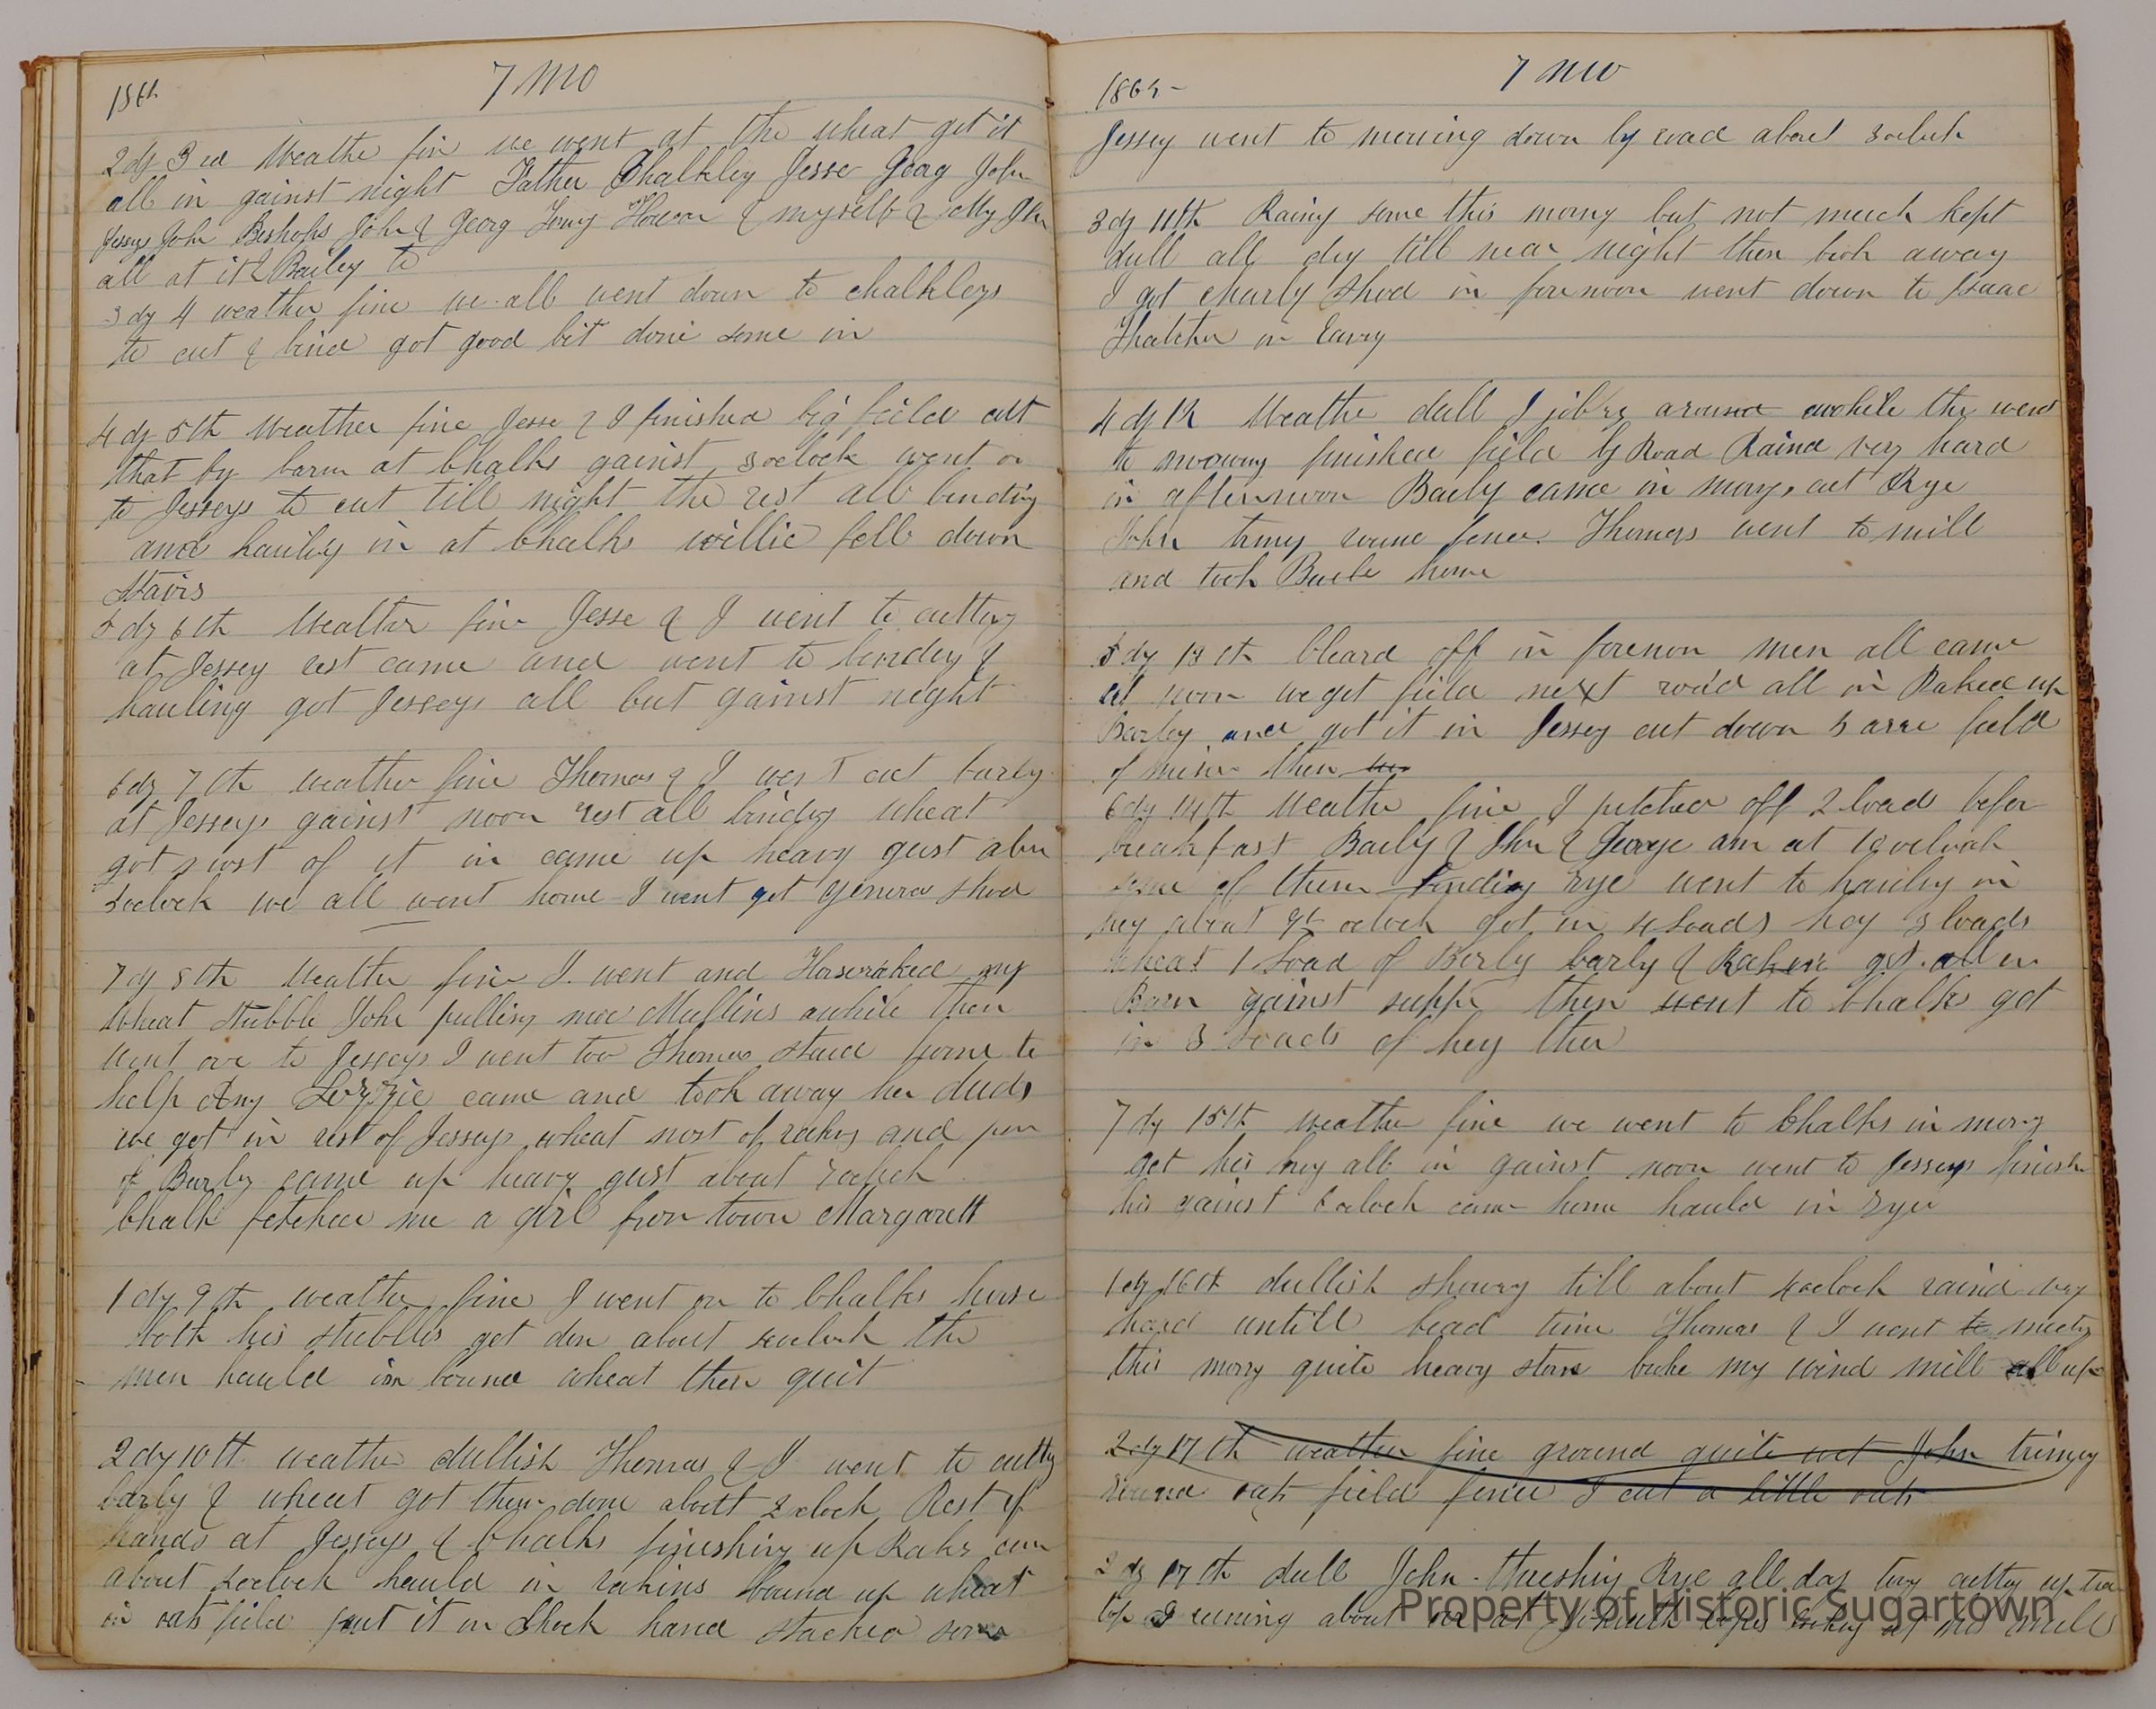 7 mo
2 dy 3 ed Weathe fin we went at the wheat got it
all in gainst night Father Chalkley Jesse Georg John
Jesseys John Bishops John & Georg Tomy & myself &
all at it & Bailey to
3 dy 4 weather fine we all went down to chalkleys
to cut & bind got good bit done some in
4 dy 5th Weather fine Jesse & I finished big feild cut
that by barn at Chalks gainst 3 oclock went on
to Jesseys to cut till night the rest all binding
and hauling in at Chalks willie fell down
stairs
5 dy 6th Weather fine Jesse & I went to cutting
at Jessey rest came and went to binding &
hauling got Jesseys all but gainst night
6 dy 7th weather fine Thomas & I went cut barly
at Jesseys gainst noon rest all binding wheat
got most of it in came up heavy gust about
oclock we all went home I went got shod
7 dy 8th Weather fine I went and Horseraked my
Wheat stubble John pulling awhile then
went over to Jesseys I went too Thomas staid home to
help Lizzie came and took away her duds
we got in rest of Jesseys wheat most of rakings and
of Barley came up heavy gust about oclock
Chalk fetched me a girl from town Margarett
1 dy 9th weather fine I went on to Chalks
both his stubbles got don about oclock the
men hauld in bound wheat then quit
2 dy 10th weathe dullish Thomas & I went to cutting
barly & wheat got them done aboutt 2 oclock Rest of
hands at Jesseys & Chalks finishing up Raks came
about oclock hauld in rakins bound up wheat
in oats feild put it in shock hand stacked some
1865
7 mo
Jessey went to mowing down by road about 3 oclock
3 dy 11th Rainy some this morng but not much kept
dull all day till near night then brok away
I got Charly Shod in forenoon went down to Isaac
Thatcher in
4 dy 12 Weathe dull I jobing around awhile the went
to mowing finished field by Road Raind very hard
in afternoon Baily came in morng cut Rye
John triming round fence. Thomas went to mill
and took home
5 dy 13th Cleard off in forenon men all came
at noon we got field next road all in Raked up
Barley and got it in Jessey cut down 5 acre field
of then
6 dy 14th Weathe fine I pitched off 2 load befor
breakfast Baily & John & George am at 10 oclock
some of them binding rye went to hauling in
hey about oclock got in 4 Loads hey 3 loads
wheat 1 Load of barly & Raken got all in
Barn gainst suppr then went to Chalks got
in 3 Loads of hey ther
7 dy 15th weather fine we went to Chalks in morng
get his hey all in gainst noon went to Jesseys finish
his gainst oclock came home hauld in rye
1 dy 16th dullish showry till about 4 oclock raind very
hard untill bead time Thomas & I went to meeting
this morng quite heavy storm broke my wind mill all up
2 dy 17th weather fine ground quite wet John triming
round oats field fence I cut a little oats
2 dy 17th dull John threshing Rye all day cutting up
top I runing about looking at his mills
Property of Historic Sugartown